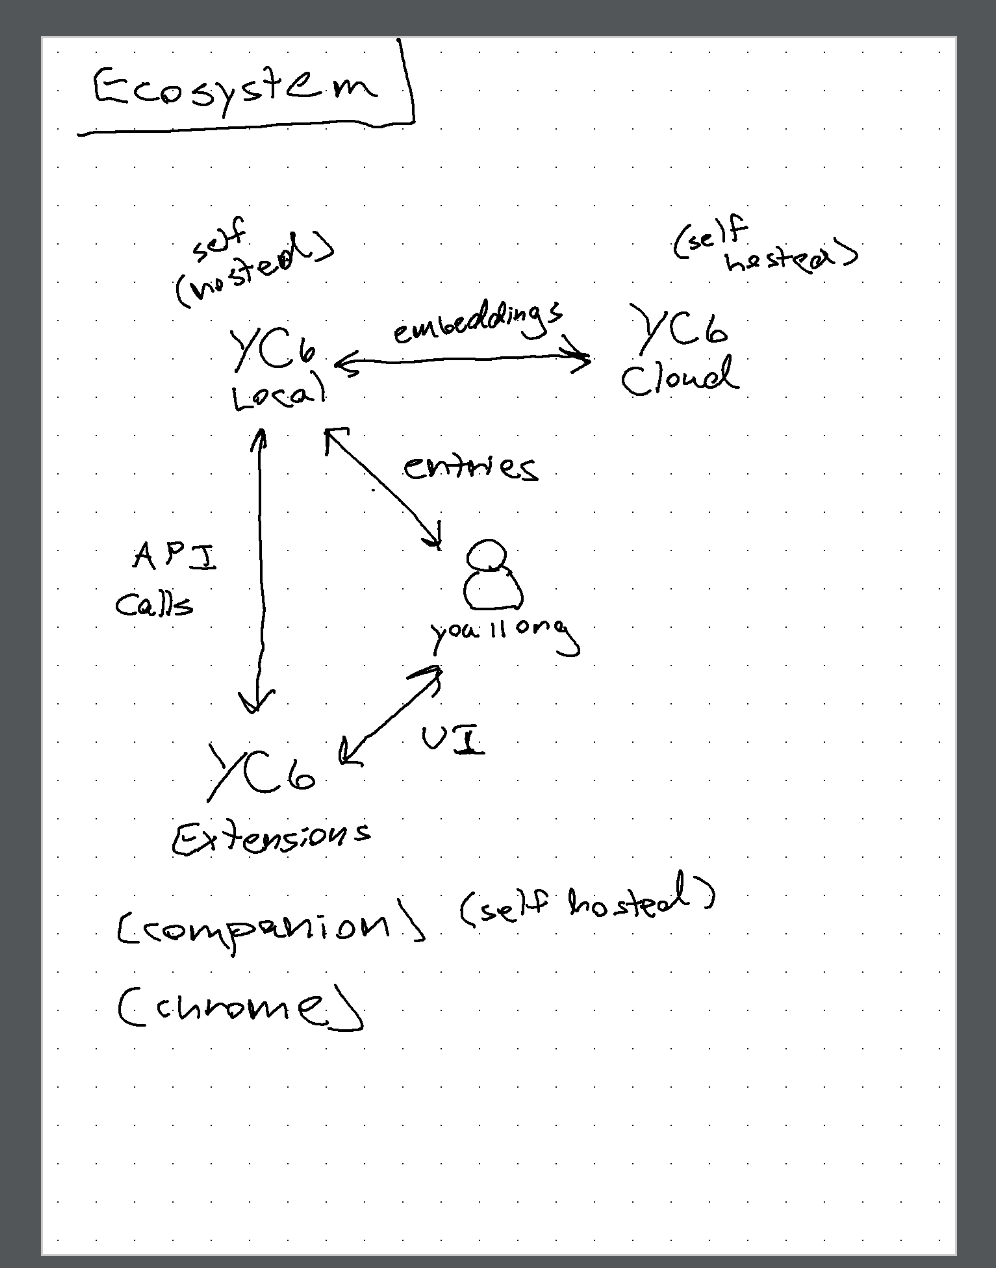 Ecosystem
self
(hosted)
(self
hosted)
YC6
Local
embeddings
YC6
Cloud
entries
API
Calls
UI
YC6
Extensions
(companion) (self hosted)
(chrome)